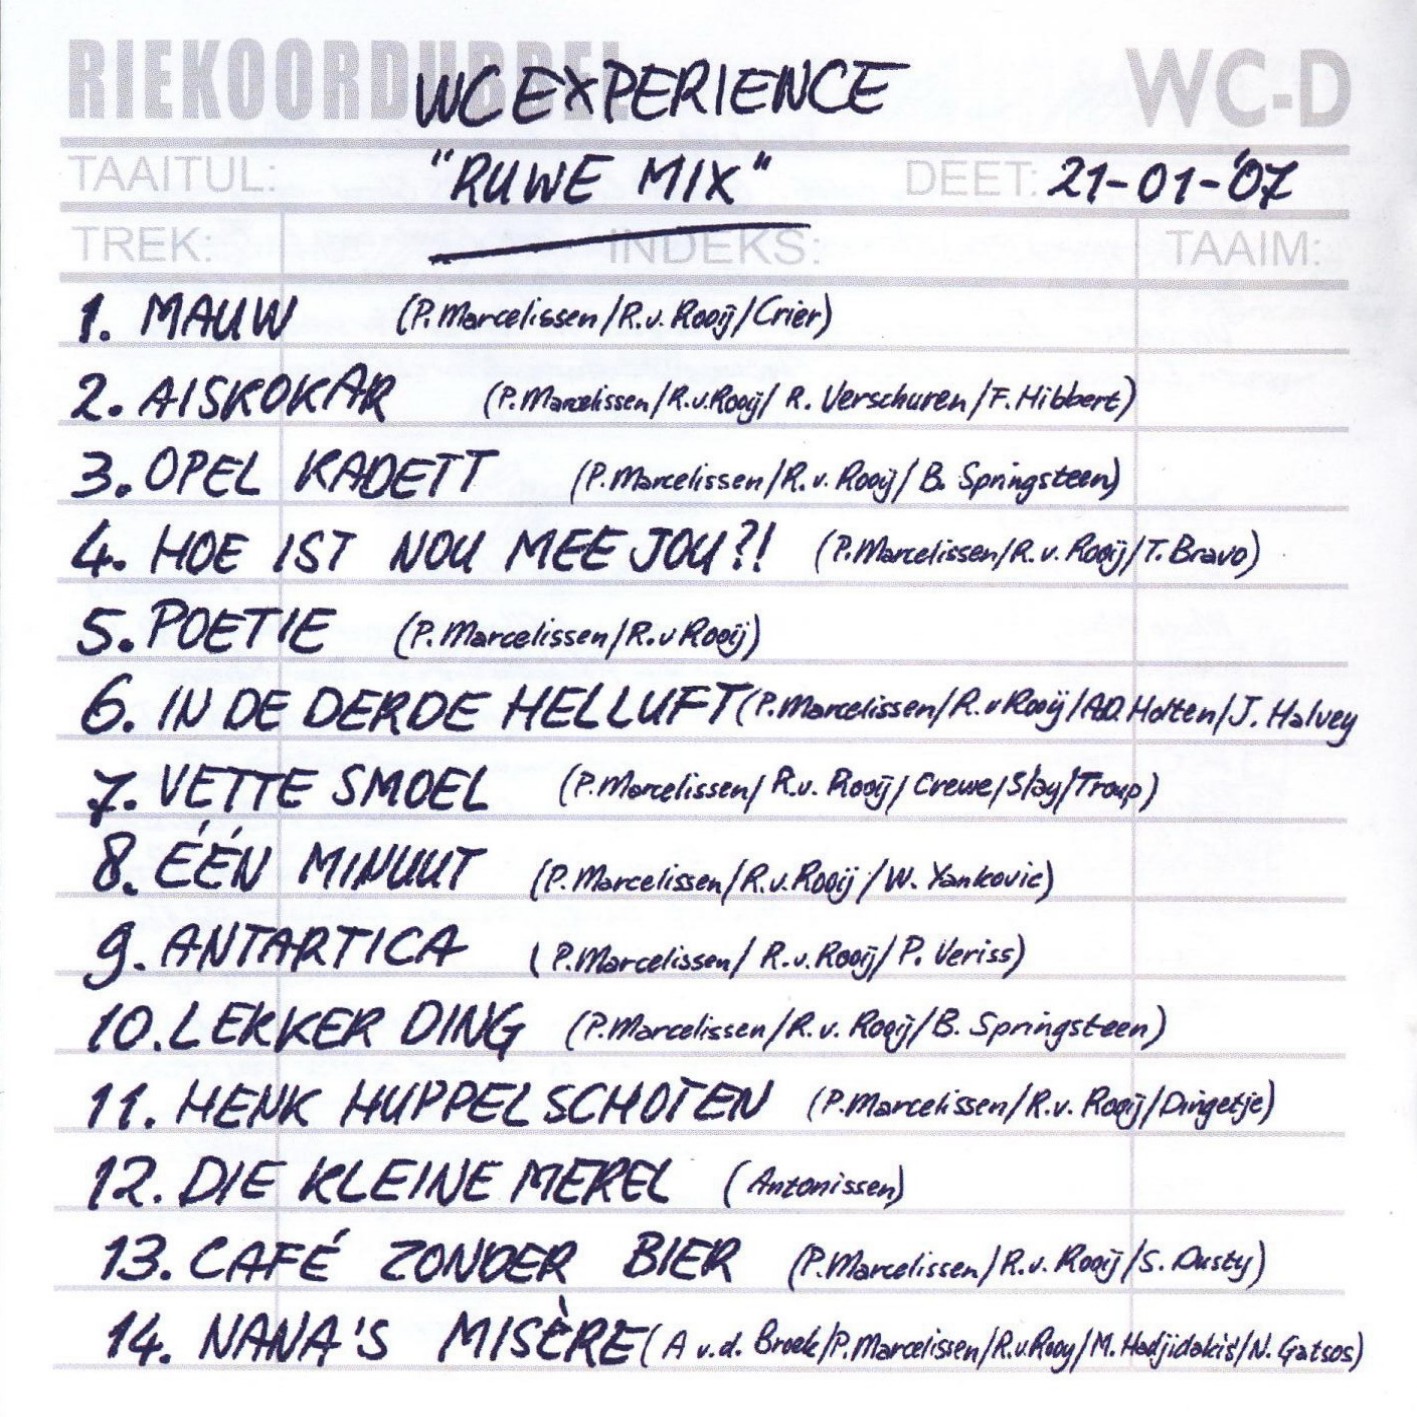 RIEKOORDUBBEL WC EXPERIENCE WC-D
TAAITUL: "RUWE MIX" DEET: 21-01-'07
TREK: INDEKS: TAAIM:
1. MAUW (P. Marcelissen/R.v. Rooij/Crier)
2. AISKOKAR (P. Marcelissen/R.v.Rooij/ R. Verschuren/F. Hibbert)
3. OPEL KADETT (P. Marcelissen/R. v. Rooij/ B. Springsteen)
4. HOE IST NOU MEE JOU?! (P. Marcelissen/R. v. Rooij/T. Bravo)
5. POETIE (P. Marcelissen/R.v Rooij)
6. IN DE DERDE HELLUFT (P. Marcelissen/R.v Rooij/A.D. Holten/J. Halvey
7. VETTE SMOEL (P. Marcelissen/ R.v. Rooij/ Crewe/Slay/Troup)
8. ÉÉN MINUUT (P. Marcelissen/R.v. Rooij/W. Yankovic)
9. ANTARTICA (P. Marcelissen/ R.v. Rooij/ P. Veriss)
10. LEKKER DING (P. Marcelissen/R. v. Rooij/B. Springsteen)
11. HENK HUPPELSCHOTEN (P. Marcelissen/R.v. Rooij/Dingetje)
12. DIE KLEINE MEREL (Antonissen)
13. CAFÉ ZONDER BIER (P. Marcelissen/R.v. Rooij/S. Dusty)
14. NANA'S MISÈRE (A v.d. Broek/P. Marcelissen/R.v Rooy/M. Hadjidakis/N. Gatsos)